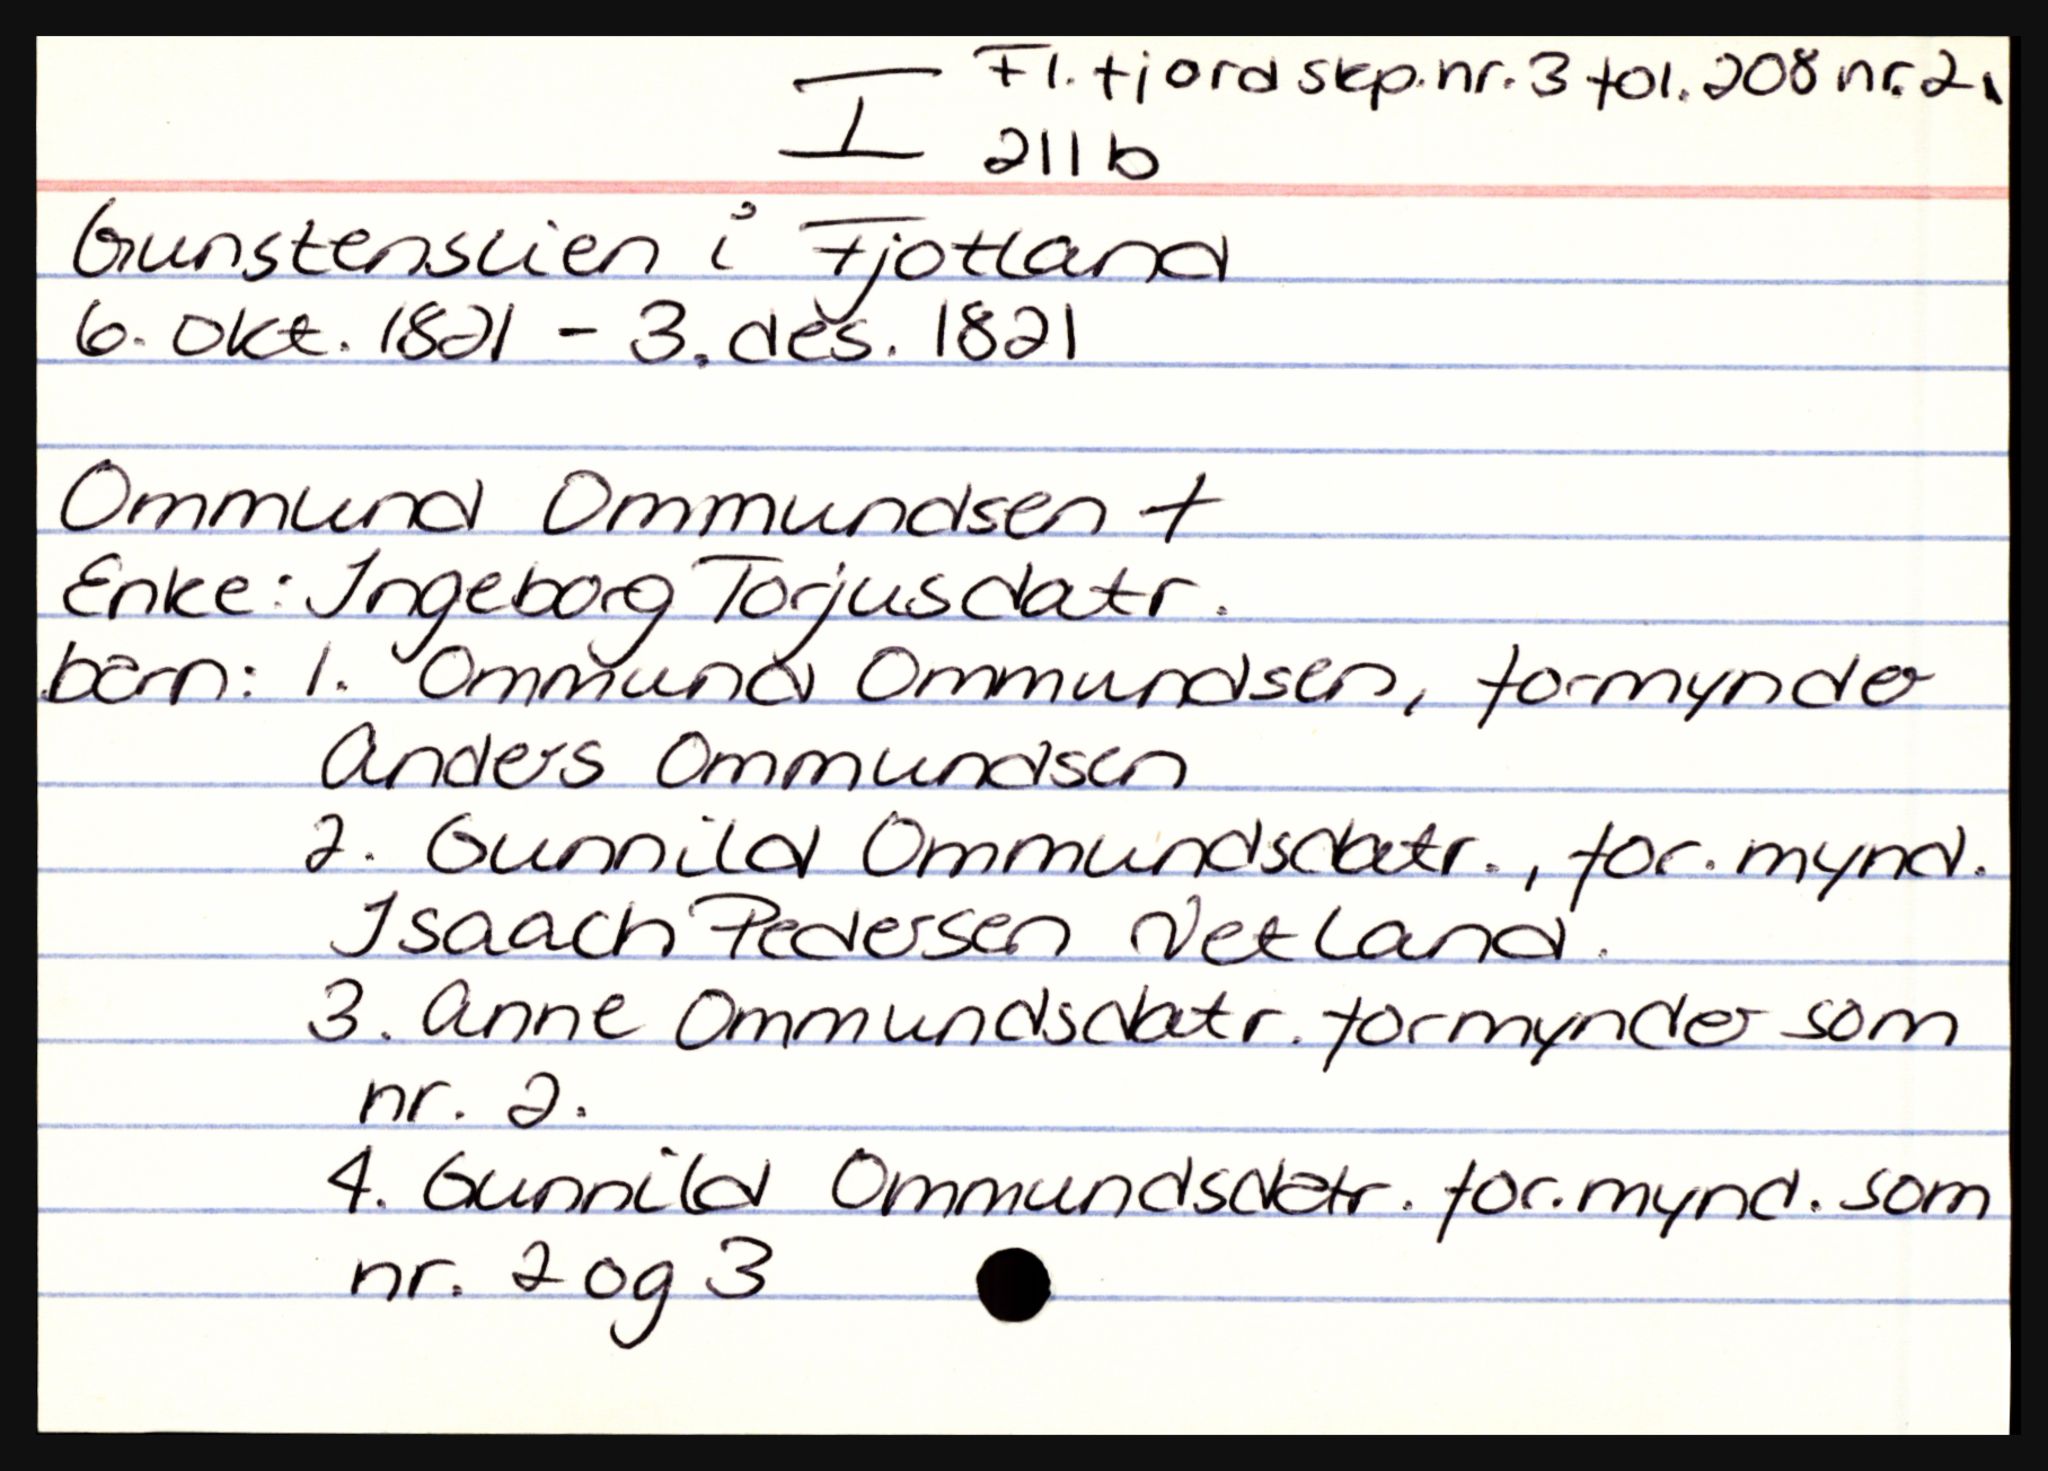 I Fl.fjord skp.nr.3 fol.208 nr.2,
211b
Gunstenslien i Fjotland
6. okt. 1821 - 3. des. 1821
Ommund Ommundsen †
Enke: Ingeborg Torjusdatr.
barn: 1. Ommund Ommundsen, formynder
Anders Ommundsen
2. Gunnild Ommundsdatr., for.mynd.
Isaach Pedersen Netland.
3. Anne Ommundsdatr. formynder som
nr. 2.
4. Gunnild Ommundsdatr. for.mynd. som
nr. 2 og 3